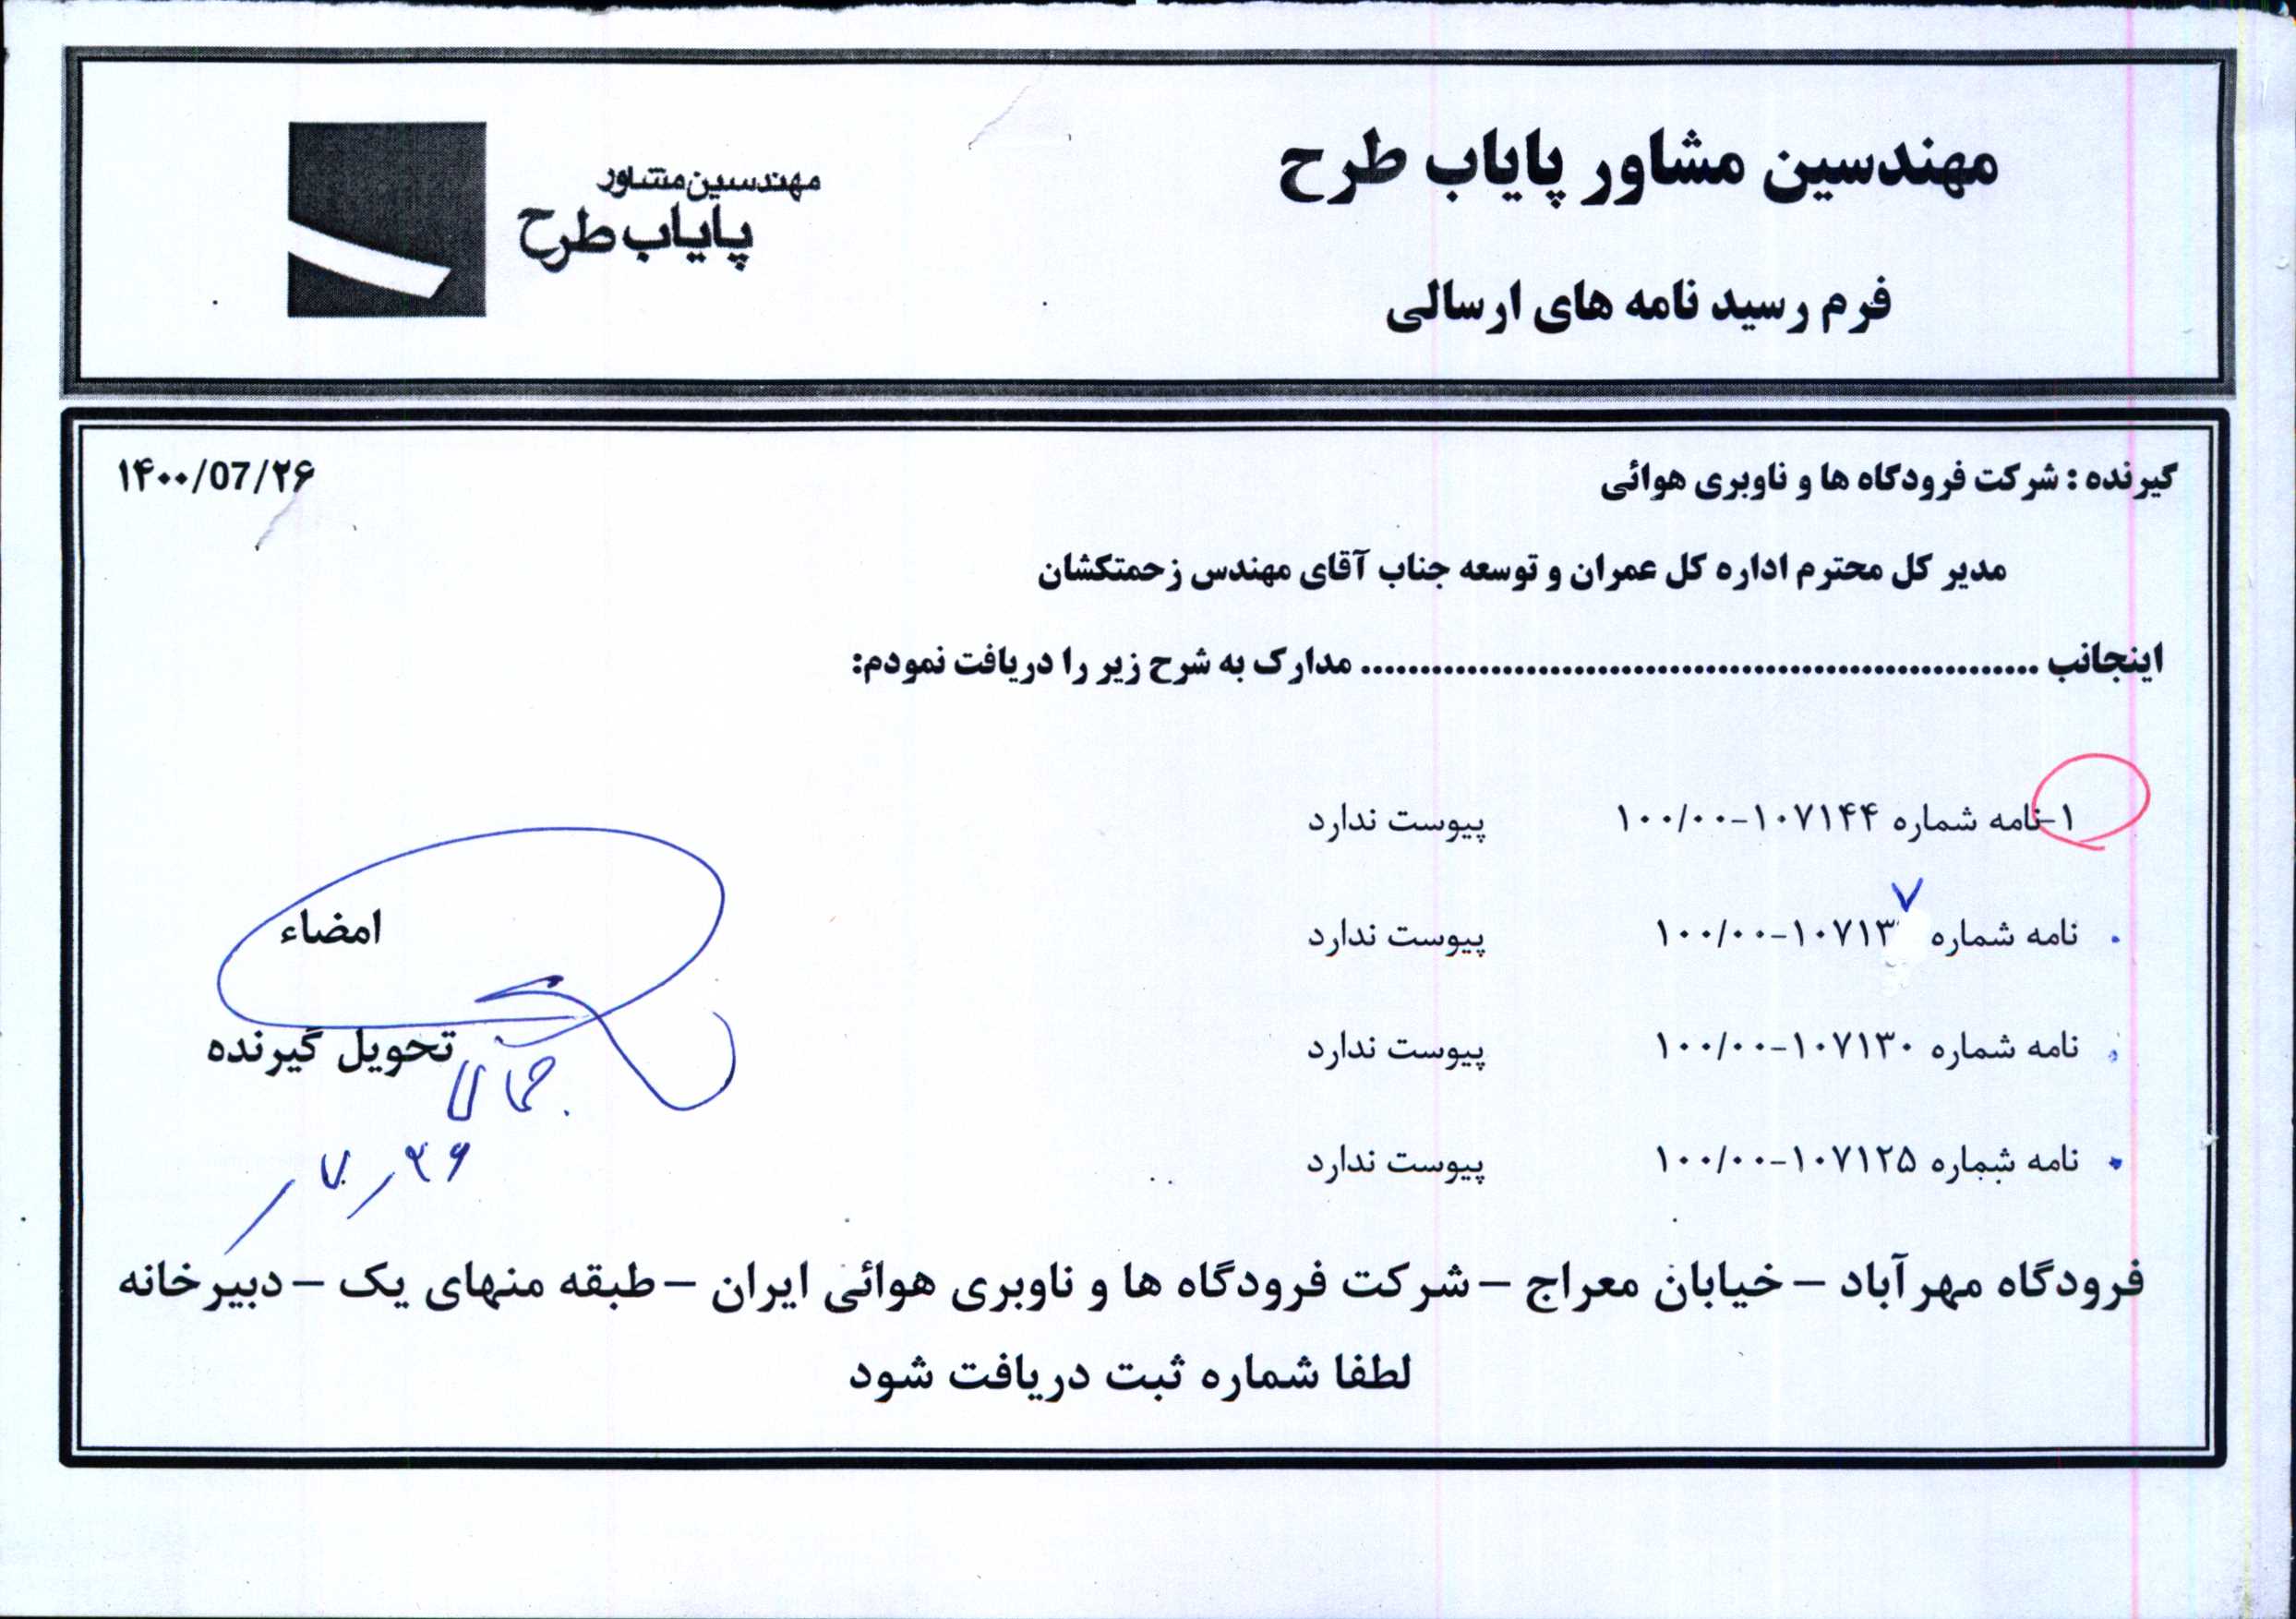 مهندسین مشاور پایاب طرح
مهندسین مشاور
پایاب طرح
فرم رسید نامه های ارسالی
گیرنده : شرکت فرودگاه ها و ناوبری هوائی
۱۴۰۰/07/۲۶
مدیر کل محترم اداره کل عمران و توسعه جناب آقای مهندس زحمتکشان
اینجانب ........................................................................................ مدارک به شرح زیر را دریافت نمودم:
۱-نامه شماره ۱۰۷۱۴۴-۱۰۰/۰۰ پیوست ندارد
نامه شماره ۱۰۷۱۳۷-۱۰۰/۰۰ پیوست ندارد
امضاء
نامه شماره ۱۰۷۱۳۰-۱۰۰/۰۰ پیوست ندارد
تحویل گیرنده
نامه شماره ۱۰۷۱۲۵-۱۰۰/۰۰ پیوست ندارد
۷/۲۶
فرودگاه مهرآباد – خیابان معراج – شرکت فرودگاه ها و ناوبری هوائی ایران – طبقه منهای یک – دبیرخانه
لطفا شماره ثبت دریافت شود